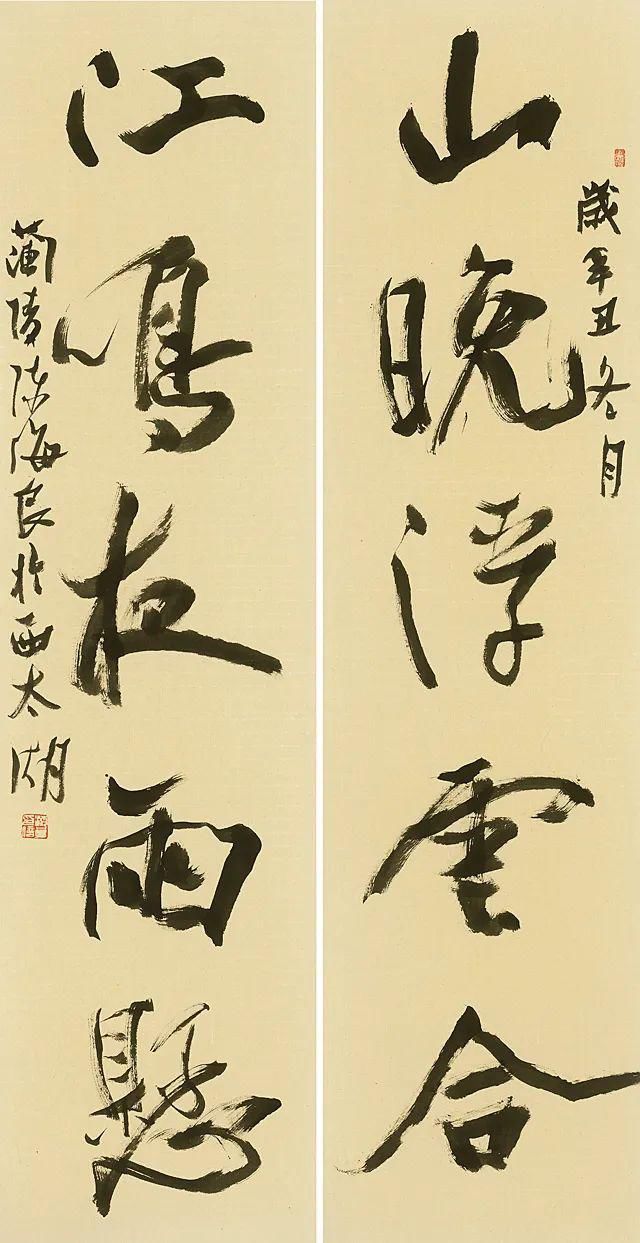 山晚浮雲合
歲辛丑冬月
江鳴夜雨懸
蘭陵陳海良於西太湖